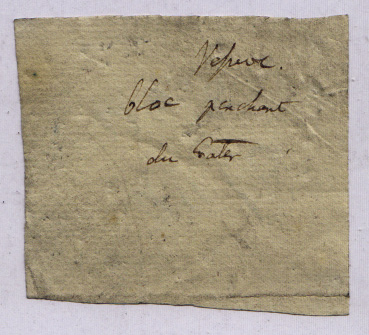 Vesuve.
bloc penchant
du Crater